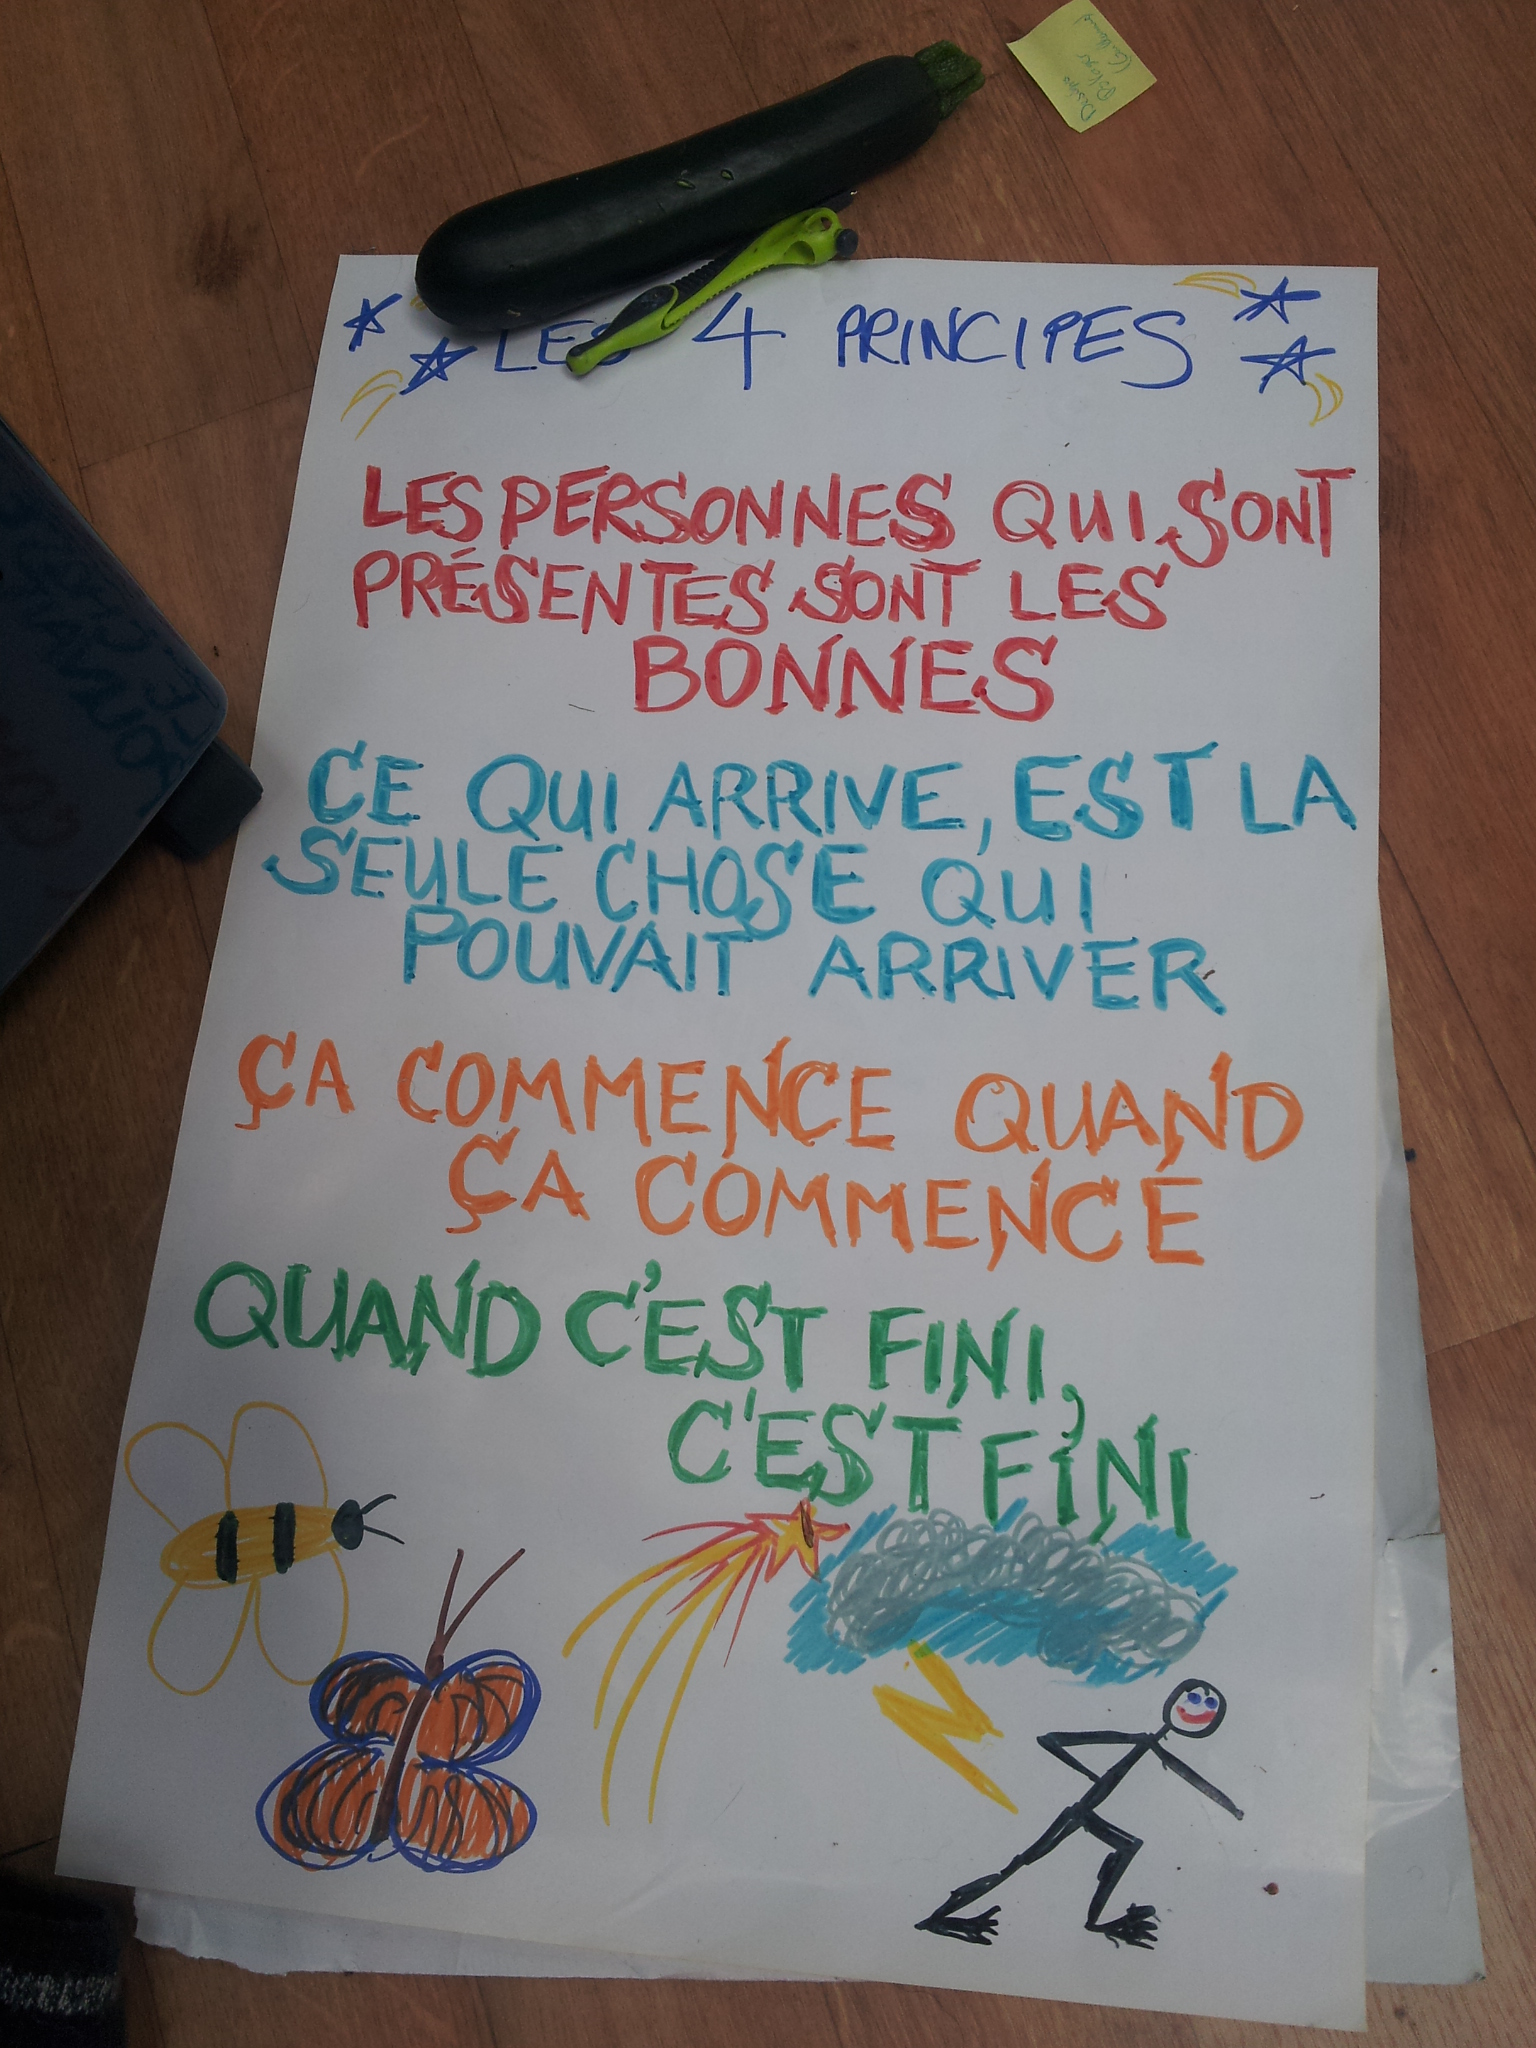 LES 4 PRINCIPES
LES PERSONNES QUI SONT
PRÉSENTES SONT LES
BONNES
CE QUI ARRIVE, EST LA
SEULE CHOSE QUI
POUVAIT ARRIVER
ÇA COMMENCE QUAND
ÇA COMMENCE
QUAND C'EST FINI,
C'EST FINI